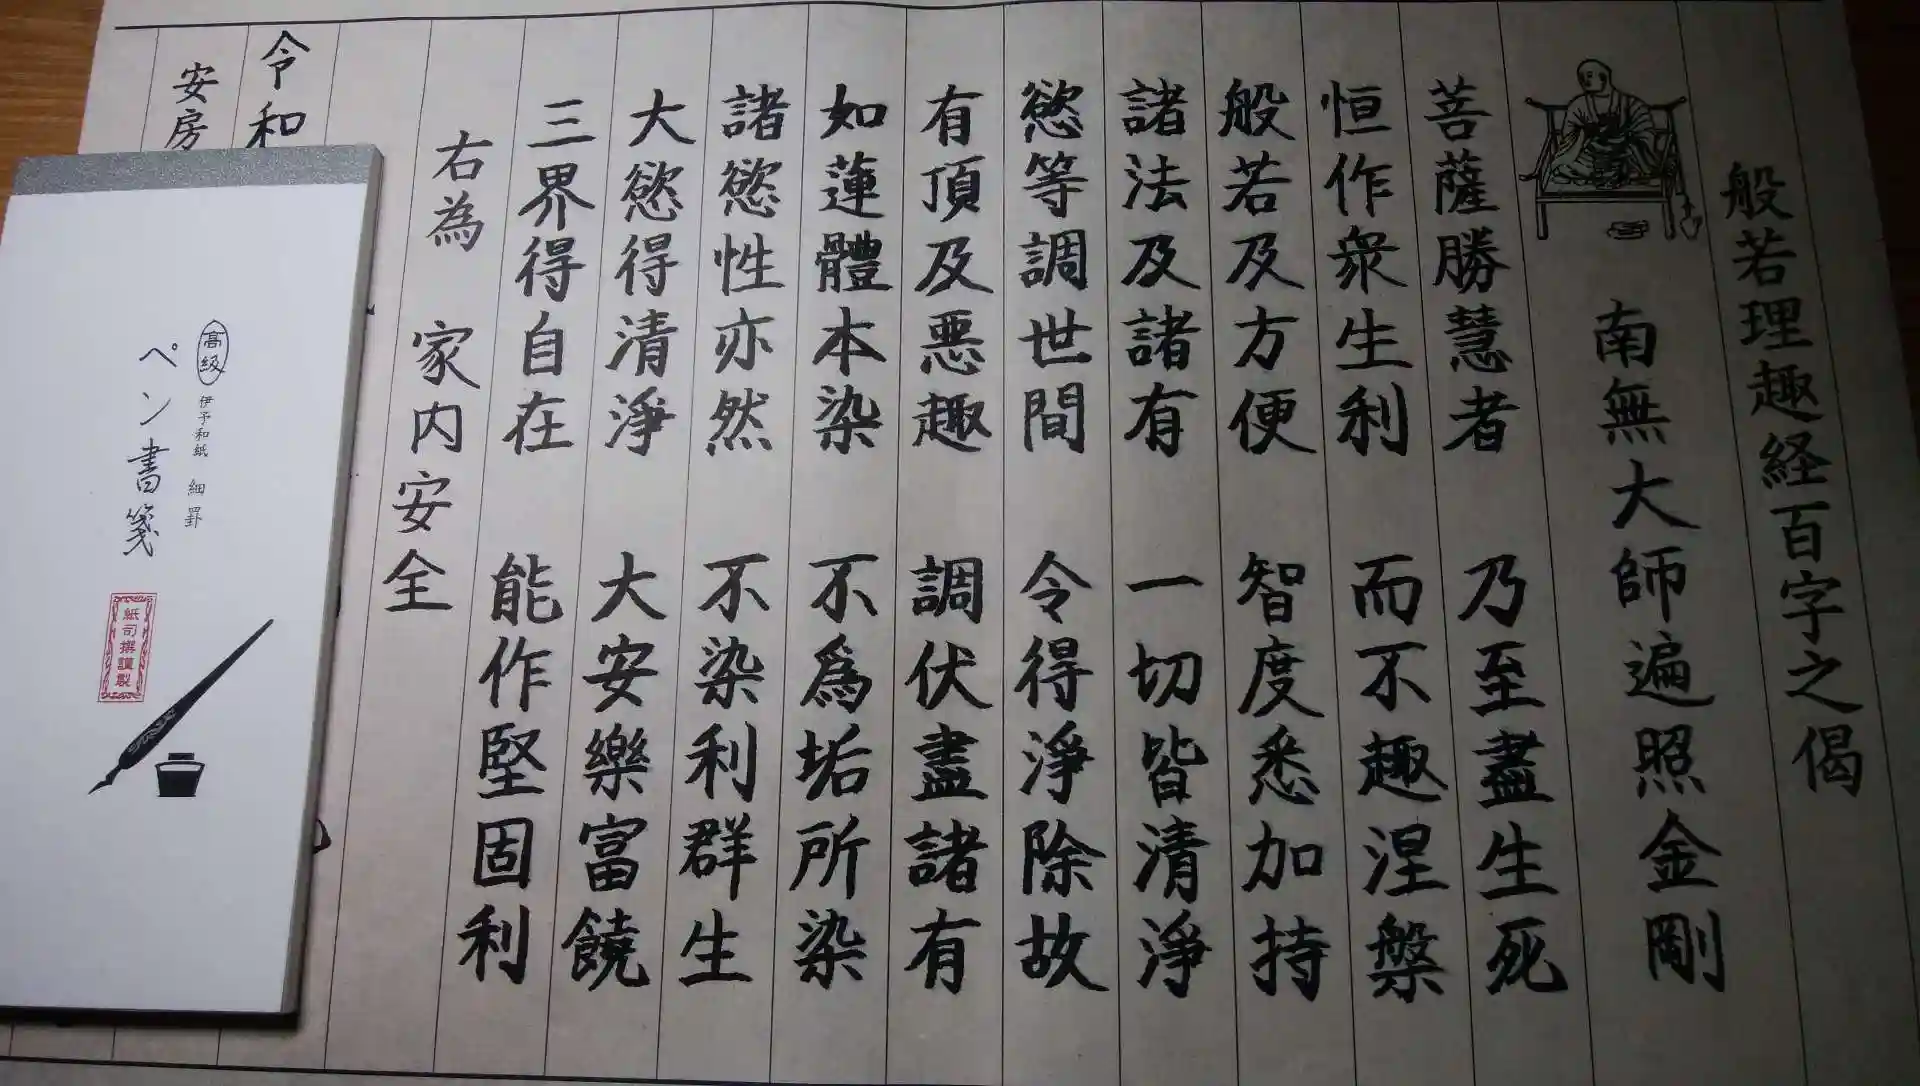 般若理趣経百字之偈
南無大師遍照金剛
菩薩勝慧者 乃至盡生死
恒作衆生利 而不趣涅槃
般若及方便 智度悉加持
諸法及諸有 一切皆清淨
慾等調世間 令得淨除故
有頂及惡趣 調伏盡諸有
如蓮體本染 不爲垢所染
諸慾性亦然 不染利群生
大慾得清淨 大安樂富饒
三界得自在 能作堅固利
右為 家内安全
令和
安房
高級
伊予和紙 細罫
ペン書箋
紙司撰謹製